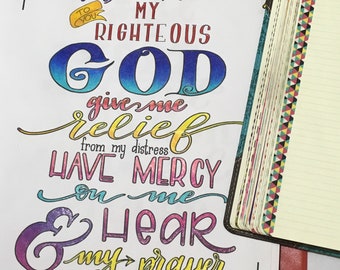 TO YOU
MY
RIGHTEOUS
GOD
give me
relief
from my distress
HAVE MERCY
on me
& HEAR
my prayer